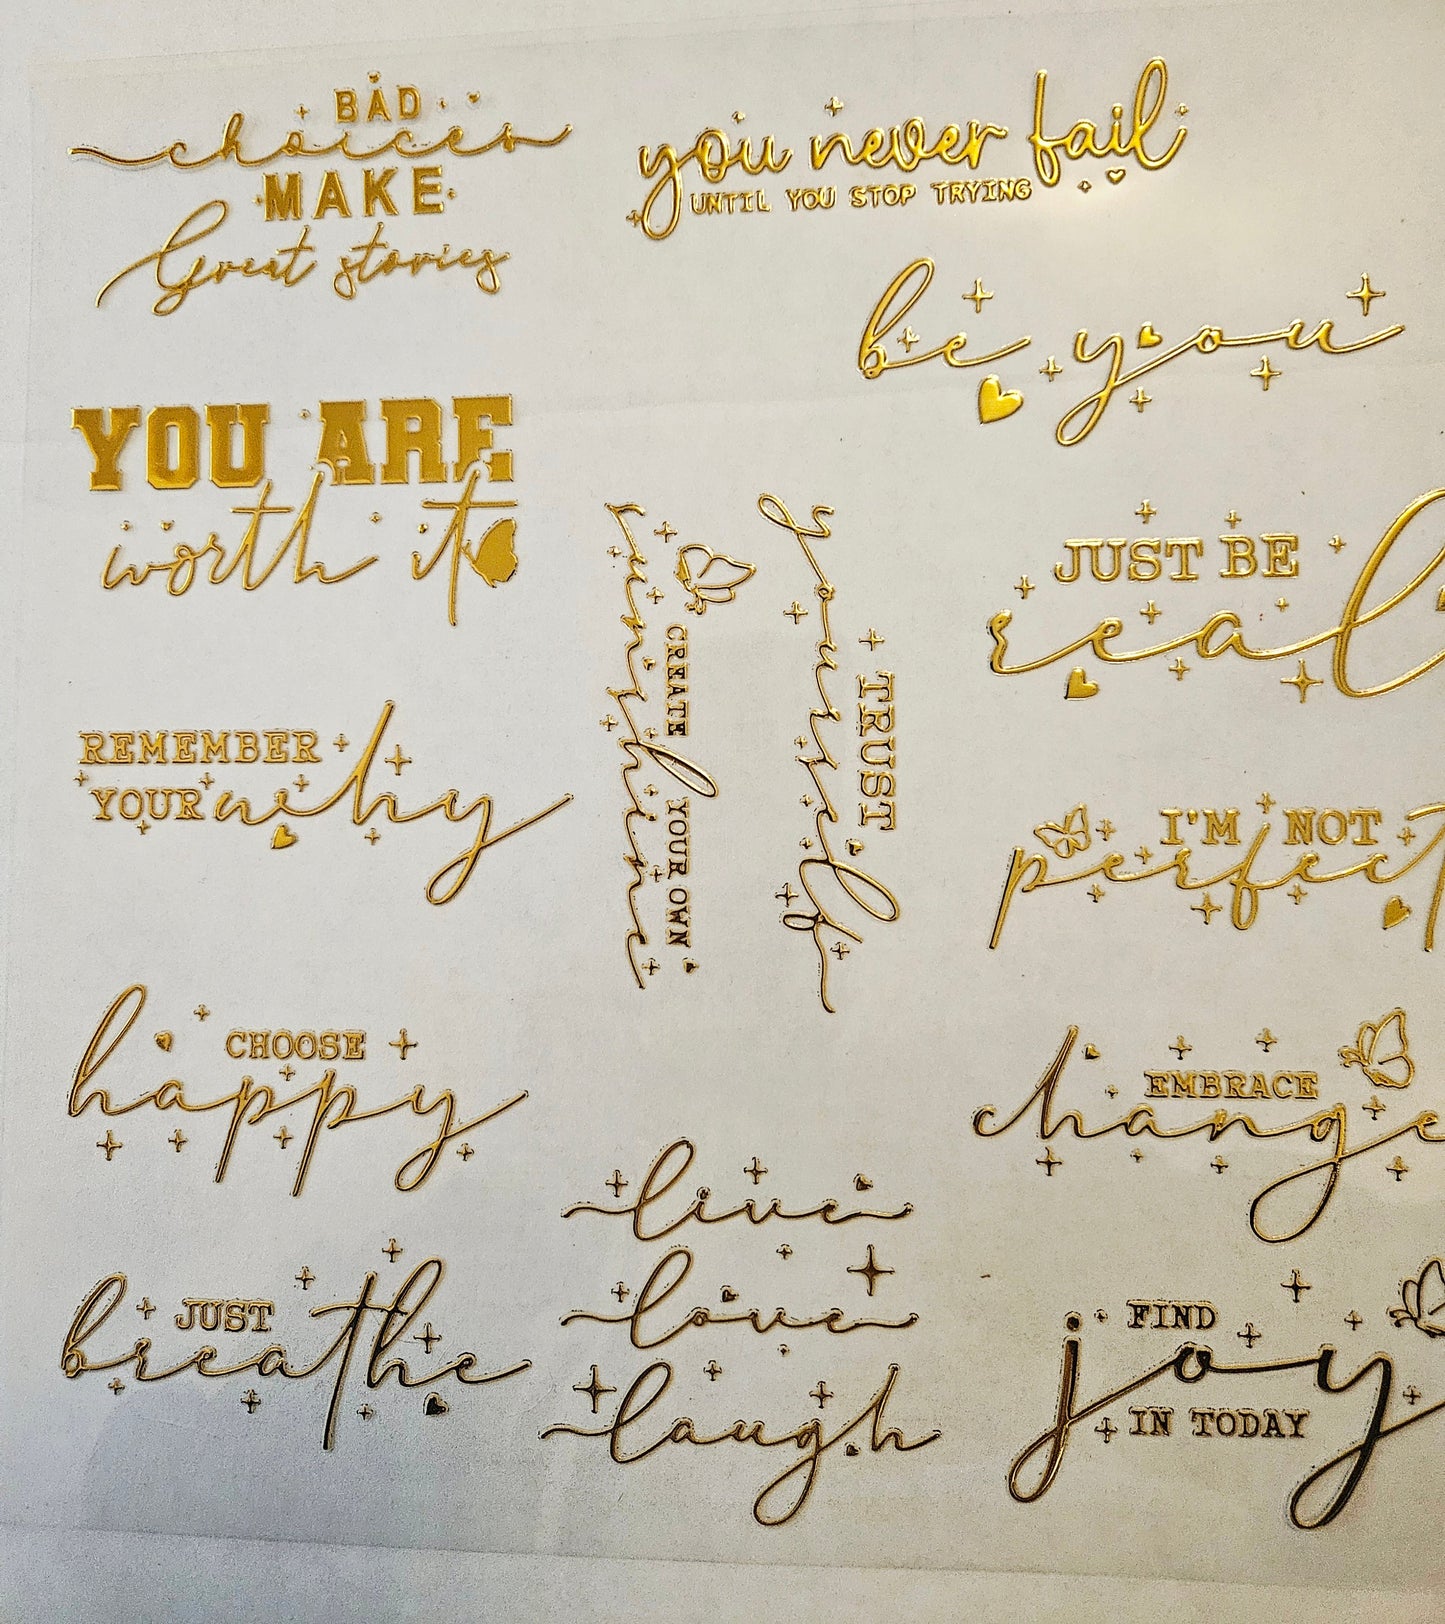 BAD
choices
MAKE
Great stories
you never fail
UNTIL YOU STOP TRYING
be you
YOU ARE
worth it
CREATE YOUR OWN
sunshine
TRUST
yourself
JUST BE
real
REMEMBER
YOUR why
I'M NOT
perfect
CHOOSE
happy
EMBRACE
change
JUST
breathe
live
love
laugh
FIND
joy
IN TODAY